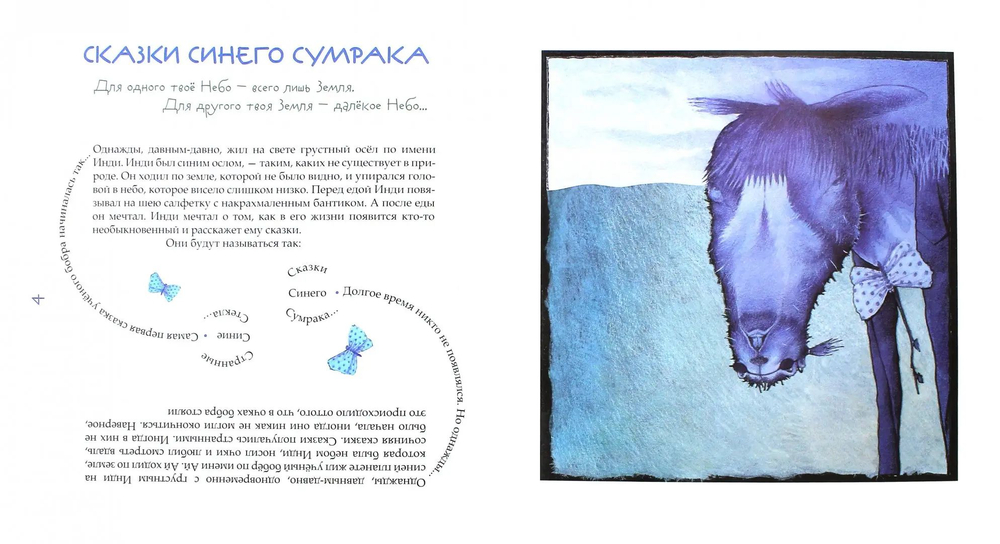 СКАЗКИ СИНЕГО СУМРАКА
Для одного твоё Небо — всего лишь Земля.
Для другого твоя Земля — далёкое Небо...
Однажды, давным-давно, жил на свете грустный осёл по имени
Инди. Инди был синим ослом, — таким, каких не существует в при-
роде. Он ходил по земле, которой не было видно, и упирался голо-
вой в небо, которое висело слишком низко. Перед едой Инди повя-
зывал на шею салфетку с накрахмаленным бантиком. А после еды
он мечтал. Инди мечтал о том, как в его жизни появится кто-то
необыкновенный и расскажет ему сказки.
Они будут называться так:
Сказки
Синего
Сумрака...
• Долгое время никто не появлялся. Но однажды...
Однажды, давным-давно, одновременно с грустным Инди на
синей планете жил учёный бобёр по имени Ай. Ай ходил по земле,
которая была небом Инди, носил очки и любил смотреть вдаль,
сочиняя сказки. Сказки получались странными. Иногда в них не
было начала, иногда они никак не могли окончиться. Наверное,
это происходило оттого, что в очках бобра стояли
Странные
Синие
Стекла...
• Самая первая сказка учёного бобра начиналась так...
4